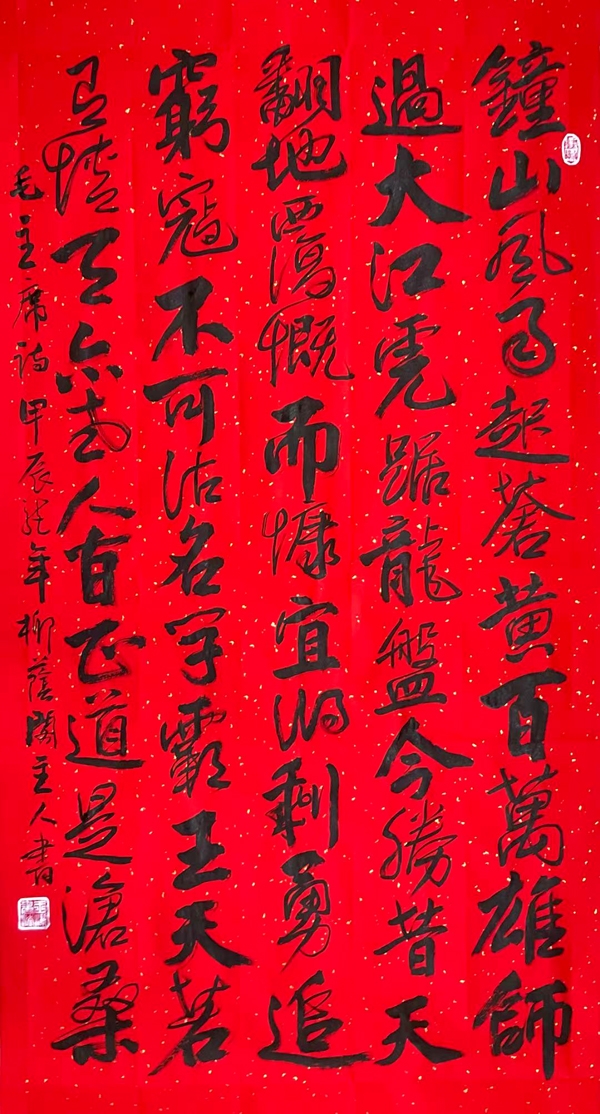 鐘山風雨起蒼黃百萬雄師
過大江虎踞龍盤今勝昔天
翻地覆慨而慷宜將剩勇追
窮寇不可沽名學霸王天若
有情天亦老人間正道是滄桑
毛主席詩甲辰龍年柳蔭閣主人書